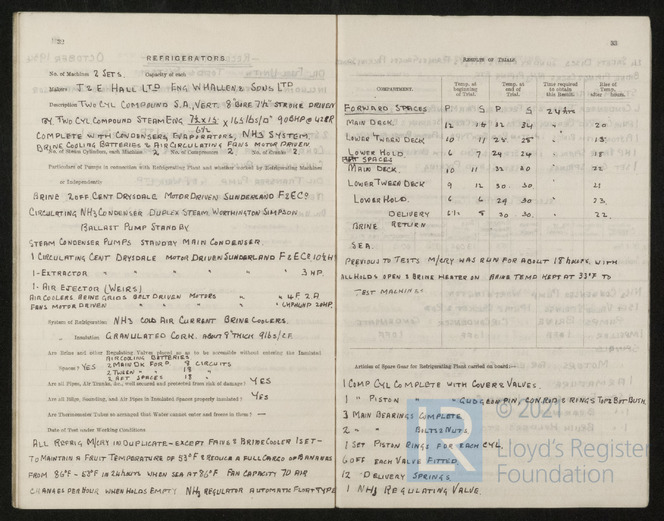 REFRIGERATORS
No. of Machines 2 SETS. Capacity of each
Makers J & E HALL LTD ENG W HALLEN & SONS LTD
Description TWO CYL COMPOUND S.A. VERT. 8" BORE 7½" STROKE DRIVEN
BY TWO CYL COMPOUND STEAM ENG x 165 lbs/□" 90 BHP @ 428R
COMPLETE WITH CONDENSERS, EVAPORATORS, NH3 SYSTEM,
BRINE COOLING BATTERIES & AIR CIRCULATING FANS MOTOR DRIVEN
No. of Steam Cylinders, each Machine 2 No. of Compressors 2 No. of Cranks 2
Particulars of Pumps in connection with Refrigerating Plant and whether worked by Refrigerating Machines
or Independently
BRINE 2 OFF CENT DRYSDALE MOTOR DRIVEN SUNDERLAND F & E Co
CIRCULATING NH3 CONDENSER DUPLEX STEAM. WORTHINGTON SIMPSON
BALLAST PUMP STAND BY
STEAM CONDENSER PUMPS STANDBY MAIN CONDENSER.
1 CIRCULATING CENT DRYSDALE MOTOR DRIVEN SUNDERLAND F & E Co 10½ H
1 - EXTRACTOR " " " " 3 HP.
1 - AIR EJECTOR (WEIRS)
AIR COOLERS BRINE GRIDS BELT DRIVEN MOTORS " " 4 F. 2 A
FANS MOTOR DRIVEN " " " "
System of Refrigeration NH3 COLD AIR CURRENT BRINE COOLERS.
" Insulation GRANULATED CORK. ABOUT 8" THICK 9 lbs/CF.
Are Brine and other Regulating Valves placed so as to be accessible without entering the Insulated
AIR COOLING BATTERIES
Spaces? YES 2 MAIN DK FOR'D 9 CIRCUITS
2 TWEEN " " 18 "
2 AFT SPACES 18 "
Are all Pipes, Air Trunks, &c., well secured and protected from risk of damage? YES
Are all Bilge, Sounding, and Air Pipes in Insulated Spaces properly insulated? YES
Are Thermometer Tubes so arranged that Water cannot enter and freeze in them? —
Date of Test under Working Conditions
ALL REFRIG M/CRY IN DUPLICATE - EXCEPT FANS & BRINE COOLER 1 SET -
TO MAINTAIN A FRUIT TEMPERATURE OF 53°F & REDUCE A FULL CARGO OF BANANAS
FROM 86°F - 53°F IN 24 HOURS WHEN SEA AT 86°F FAN CAPACITY 70 AIR
CHANGES PER HOUR WHEN HOLDS EMPTY NH3 REGULATOR AUTOMATIC FLOAT TYPE
RESULTS OF TRIALS.
COMPARTMENT. Temp. at beginning of Trial. Temp. at end of Trial. Time required to obtain this Result. Rise of Temp. after hours.
FORWARD SPACES P. S P. S 24 hrs
MAIN DECK. 12 32 34 " 20
LOWER TWEEN DECK 10 11 28 " 18
LOWER HOLD 6 7 24 24 " 18
AFT SPACES
MAIN DECK. 10 11 32 " 22
LOWER TWEEN DECK 9 12 30 30. " 21
LOWER HOLD. 6 6 29 30 " 23
DELIVERY 30 30. " 22.
BRINE RETURN
SEA.
PREVIOUS TO TESTS M/CRY WAS RUN FOR ABOUT 18 HOURS, WITH
ALL HOLDS OPEN & BRINE HEATER ON BRINE TEMP KEPT AT 33°F TO
TEST MACHINES
Articles of Spare Gear for Refrigerating Plant carried on board:—
1 COMP CYL COMPLETE WITH COVER & VALVES.
1 " PISTON " " GUDGEON PIN, CON ROD & RINGS TOP & BOT BUSH.
3 MAIN BEARINGS COMPLETE
2 " " BOLTS & NUTS
1 SET PISTON RINGS FOR EACH CYL
6 OFF EACH VALVE FITTED
12 DELIVERY SPRINGS.
1 NH3 REGULATING VALVE.
© 2021
Lloyd's Register
Foundation